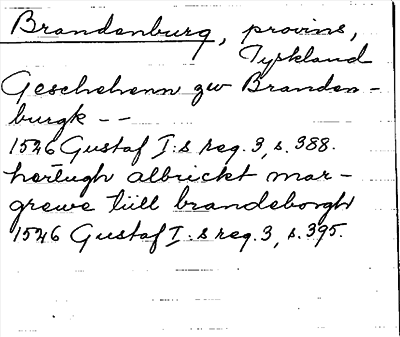 Brandenburg, provins,
Tyskland
Geschehenn zw Branden-
burgk - -
1526 Gustaf I:s reg. 3, s. 388.
hertugh albrickt mar-
grewe tiill brandeborgh
1526 Gustaf I:s reg. 3, s. 395.